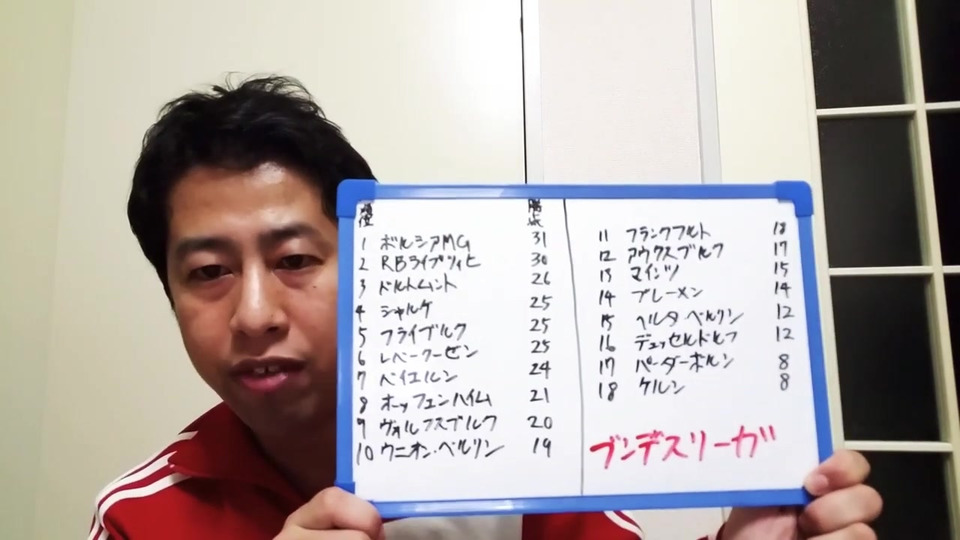 順位 勝点
1 ボルシアMG 31
2 RBライプツィヒ 30
3 ドルトムント 26
4 シャルケ 25
5 フライブルク 25
6 レバークーゼン 25
7 バイエルン 24
8 ホッフェンハイム 21
9 ヴォルフスブルク 20
10 ウニオン・ベルリン 19
11 フランクフルト 18
12 アウクスブルク 17
13 マインツ 15
14 ブレーメン 14
15 ヘルタ ベルリン 12
16 デュッセルドルフ 12
17 パーダーボルン 8
18 ケルン 8
ブンデスリーガ